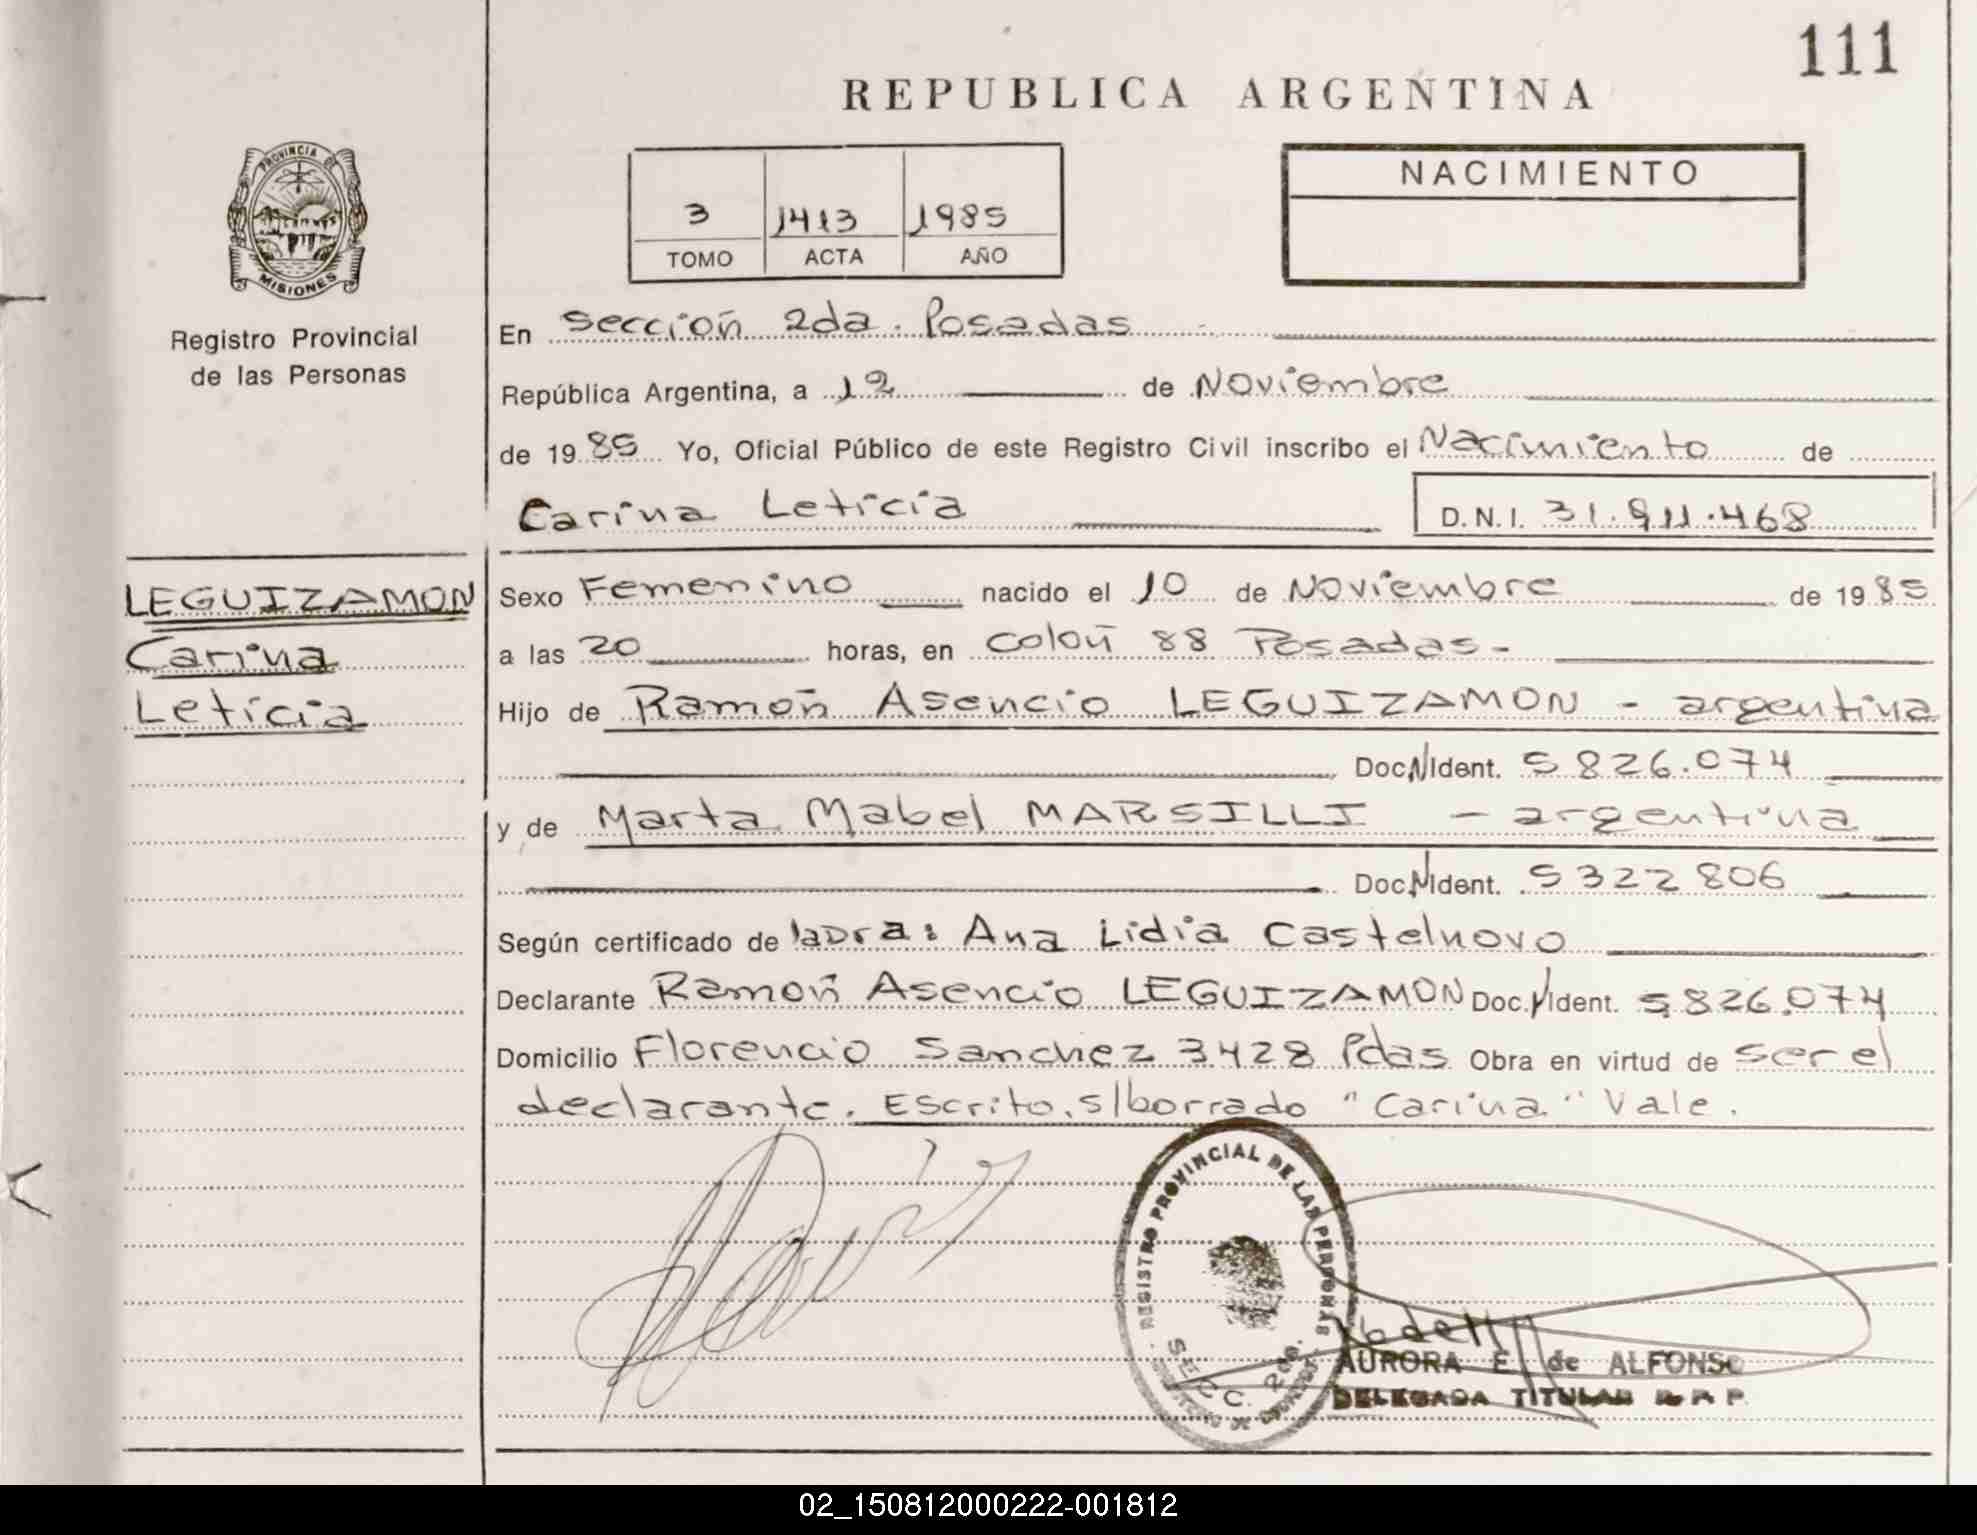 111
REPUBLICA ARGENTINA
PROVINCIA DE
MISIONES
Registro Provincial
de las Personas
3 1413 1985
TOMO ACTA AÑO
NACIMIENTO
En Sección 2da. Posadas
República Argentina, a 12 de Noviembre
de 1985 Yo, Oficial Público de este Registro Civil inscribo el Nacimiento de
Carina Leticia D.N.I. 31.911.468
LEGUIZAMON
Carina
Leticia
Sexo Femenino nacido el 10 de Noviembre de 1985
a las 20 horas, en Colón 88 Posadas.-
Hijo de Ramón Asencio LEGUIZAMON - argentina
Doc. N Ident. 5826.074
y de Marta Mabel MARSILLI - argentina
Doc. N Ident. 5322806
Según certificado de la Dra: Ana Lidia Castelnovo
Declarante Ramón Asencio LEGUIZAMON Doc. N Ident. 5.826.074
Domicilio Florencio Sanchez 3428 Pdas Obra en virtud de ser el
declarante. Escrito s/borrado "Carina" Vale.
REGISTRO PROVINCIAL DE LAS PERSONAS
SECC. 2da.
AURORA E. de ALFONSO
DELEGADA TITULAR R. P. P.
02_150812000222-001812